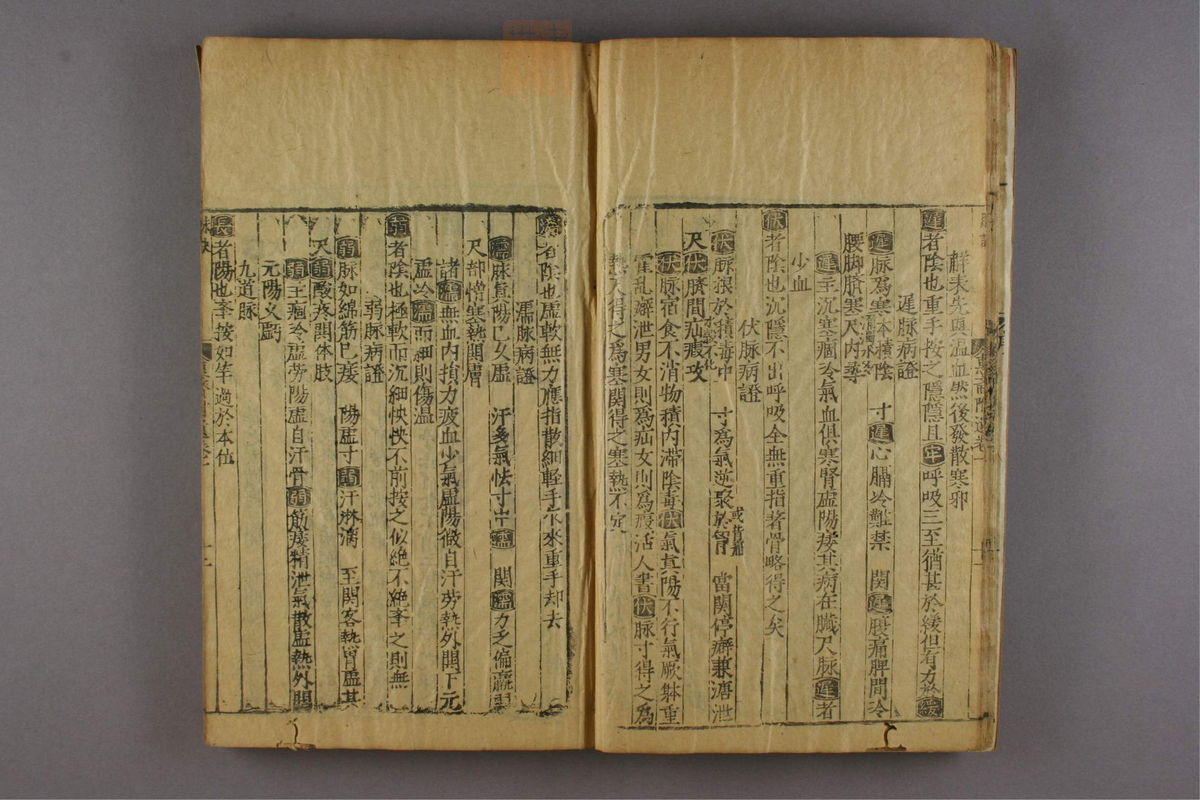 蘚未先頭溫血然後發散寒邪
遲脉病證
遲者陰也重手按之隱隱且牢呼吸三至猶甚於緩但有力於緩
遲脉爲寒本積陰 寸遲心膈冷難禁 関遲腹痛脾間冷
腰脚臍寒尺内尋
遲主沉寒痼冷氣血俱寒腎虛陽痿其病在臟尺脉遲者
少血
伏脉病證
伏者陰也沉隱不出呼吸全無重指著骨略得之矣
伏脉根於積毒中 寸爲氣逆聚於胃 當関停癖兼溏泄
尺伏臍間疝瘕攻
伏脉宿食不消物積内滞陰毒伏氣真陽不行氣厥躰重
霍亂癖泄男女則爲疝女則爲瘕活人書伏脉寸得之爲
得之爲寒関得之寒熱不定
濡脉病證
濡者陰也虛軟無力應指散細輕手乍來重手却去
濡脉真陽已久虛 汗多氣怯寸中濡 関濡力乏偏羸弱
尺部憎寒熱開膚
諸濡無血内損力疲血少氣虛陽微自汗労熱外開下元
虛冷濡而細則傷温
弱脉病證
弱者陰也極軟而沉細怏怏不前按之似絶不絶牽之則無
弱脉如綿筋已痿 陽虛寸弱汗淋漓 至関客熱胃虛甚
尺弱酸疼開体肢
弱主痼冷虛労陽虛自汗骨弱筋痿精泄氣散虛熱外開
元陽乂虧
九道脉
長者陽也牽按如竿過於本位